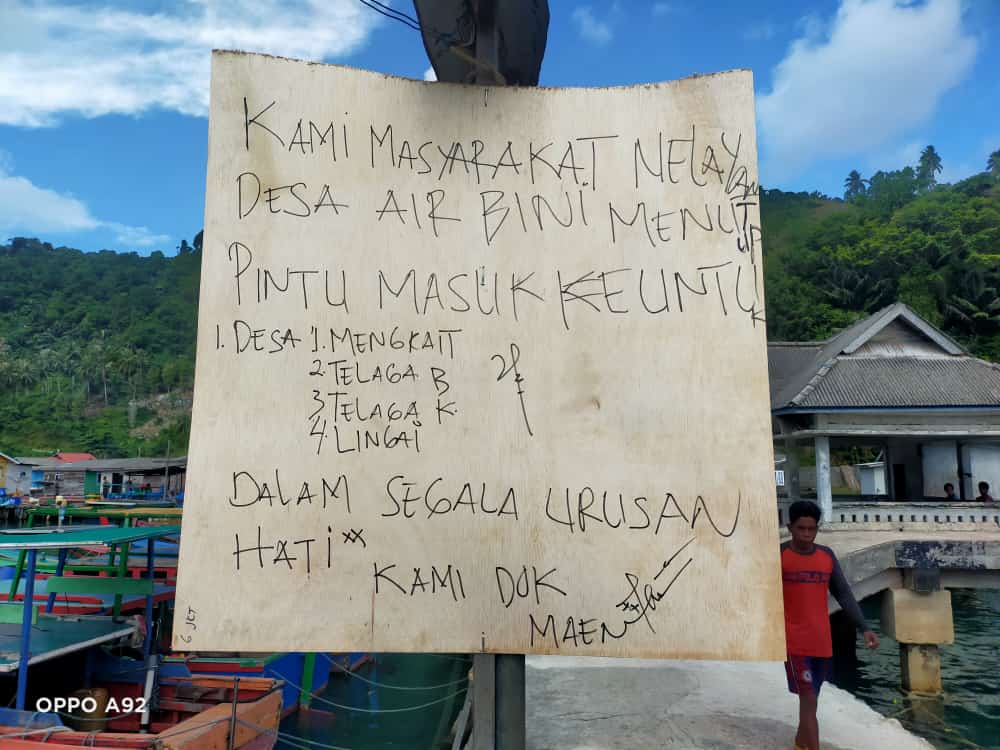 KAMI MASYARAKAT NELAYAN
DESA AIR BINI MENUTUP
PINTU MASUK KEUNTUK
1. DESA 1. MENGKAIT
2. TELAGA B
3. TELAGA K.
4. LINGAI
DALAM SEGALA URUSAN
HATI xx
KAMI DUK
MAEN
6 JET
OPPO A92